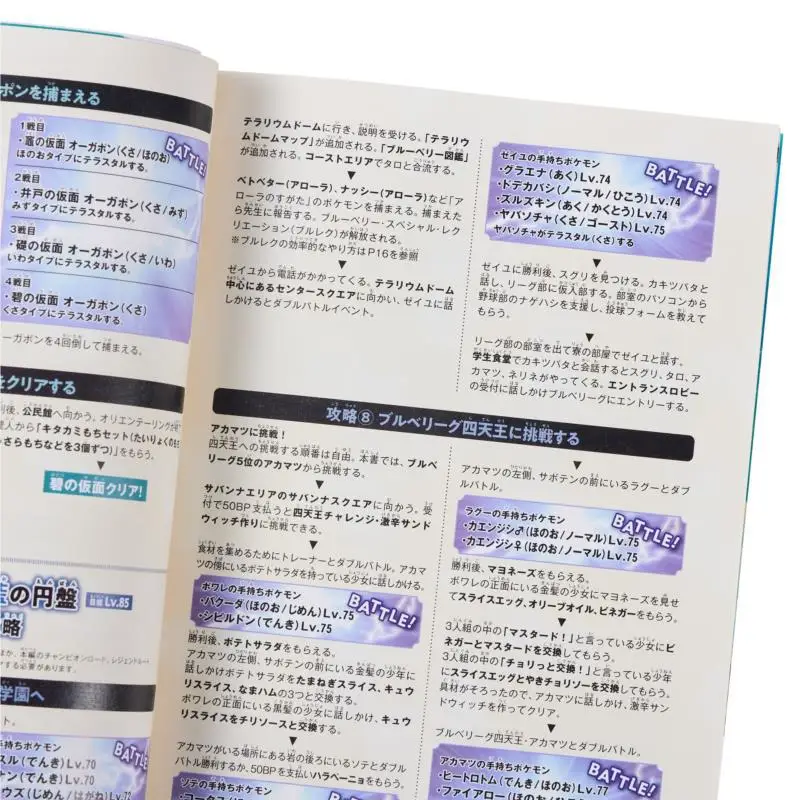 ポンを捕まえる
1戦目
・竈の仮面 オーガポン(くさ/ほのお)
ほのおタイプにテラスタルする。
BATTLE!
2戦目
・井戸の仮面 オーガポン(くさ/みず)
みずタイプにテラスタルする。
3戦目
・礎の仮面 オーガポン(くさ/いわ)
いわタイプにテラスタルする。
4戦目
・碧の仮面 オーガポン(くさ)
くさタイプにテラスタルする。
ーガポンを4回倒して捕まえる。
をクリアする
利後、公民館へ向かう。オリエンテーリングが
人から「キタカミもちセット(たいりょくのも
っさらもちなどを3個ずつ)」をもらう。
碧の仮面クリア!
の円盤
Lv.85
略
ほか、本編のチャンピオンロード、レジェンドルー
する必要があります。
学園へ
ト。
手持ちポケモン
BATT
スル(でんき)Lv.70
ン(でんき)Lv.70
ウズ(じめん/はがね)Lv.72
テラリウムドームに行き、説明を受ける。「テラリ
ウムドームマップ」が追加される。「ブルーベリー図鑑」
が追加される。コーストエリアでタロと合流する。
▼
ベトベター(アローラ)、ナッシー(アローラ)など「ア
ローラのすがた」のポケモンを捕まえる。捕まえた
ら先生に報告する。ブルーベリー・スペシャル・レク
リエーション(ブルレク)が解放される。
※ブルレクの効率的なやり方はP16を参照
▼
ゼイユから電話がかかってくる。テラリウムドーム
中心にあるセンタースクエアに向かい、ゼイユに話
しかけるとダブルバトルイベント。
ゼイユの手持ちポケモン
BATTLE!
・グラエナ(あく)Lv.74
・ドデカバシ(ノーマル/ひこう)Lv.74
・ズルズキン(あく/かくとう)Lv.74
・ヤバソチャ(くさ/ゴースト)Lv.75
ヤバソチャがテラスタル(くさ)する
▼
ゼイユに勝利後、スグリを見つける。カキツバタと
話し、リーグ部に仮入部する。部室のパソコンから
野球部のナゲハシを支援し、投球フォームを教えて
もらう。
▼
リーグ部の部室を出て寮の部屋でゼイユと話す。
学生食堂でカキツバタと会話するとスグリ、タロ、ア
カマツ、ネリネがやってくる。エントランスロビー
の受付に話しかけブルベリーグにエントリーする。
攻略⑧ ブルベリーグ四天王に挑戦する
アカマツに挑戦!
四天王への挑戦する順番は自由。本書では、ブルベ
リーグ5位のアカマツから挑戦する。
▼
サバンナエリアのサバンナスクエアに向かう。受
付で50BP支払うと四天王チャレンジ・激辛サンド
ウィッチ作りに挑戦できる。
▼
食材を集めるためにトレーナーとダブルバトル。アカマ
ツの傍にいるポテトサラダを持っている少女に話しかける。
ポワレの手持ちポケモン
BATTLE!
・バクーダ(ほのお/じめん)Lv.75
・シビルドン(でんき)Lv.75
勝利後、ポテトサラダをもらえる。
アカマツの左側、サボテンの前にいる金髪の少年に
話しかけポテトサラダをたまねぎスライス、キュウ
リスライス、なまハムの3つと交換する。
ポワレの正面にいる黒髪の少女に話しかけ、キュウ
リスライスをチリソースと交換する。
▼
アカマツがいる場所にある岩の後ろにいるソテとダブル
バトル勝利するか、50BPを支払いハラペーニョをもらう。
ソテの手持ちポケモン
BATTLE!
アカマツの左側、サボテンの前にいるラグーとダブ
ルバトル。
ラグーの手持ちポケモン
BATTLE!
・カエンジシ♂(ほのお/ノーマル)Lv.75
・カエンジシ♀(ほのお/ノーマル)Lv.75
勝利後、マヨネーズをもらえる。
ポワレの正面にいる金髪の少女にマヨネーズを見せ
てスライスエッグ、オリーブオイル、ビネガーをもらう。
▼
3人組の中の「マスタード!」と言っている少女にビ
ネガーとマスタードを交換してもらう。
3人組の中の「チョリっと交換!」と言っている少年
にスライスエッグとやきチョリソーを交換してもらう。
具材がそろったので、アカマツに話しかけ、激辛サン
ドウィッチを作ってクリア。
▼
ブルベリーグ四天王・アカマツとダブルバトル。
アカマツの手持ちポケモン
BATTLE!
・ヒートロトム(でんき/ほのお)Lv.77